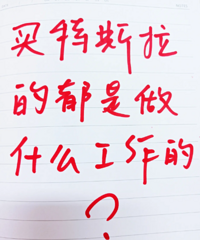 买特斯拉
的都是做
什么工作的
?